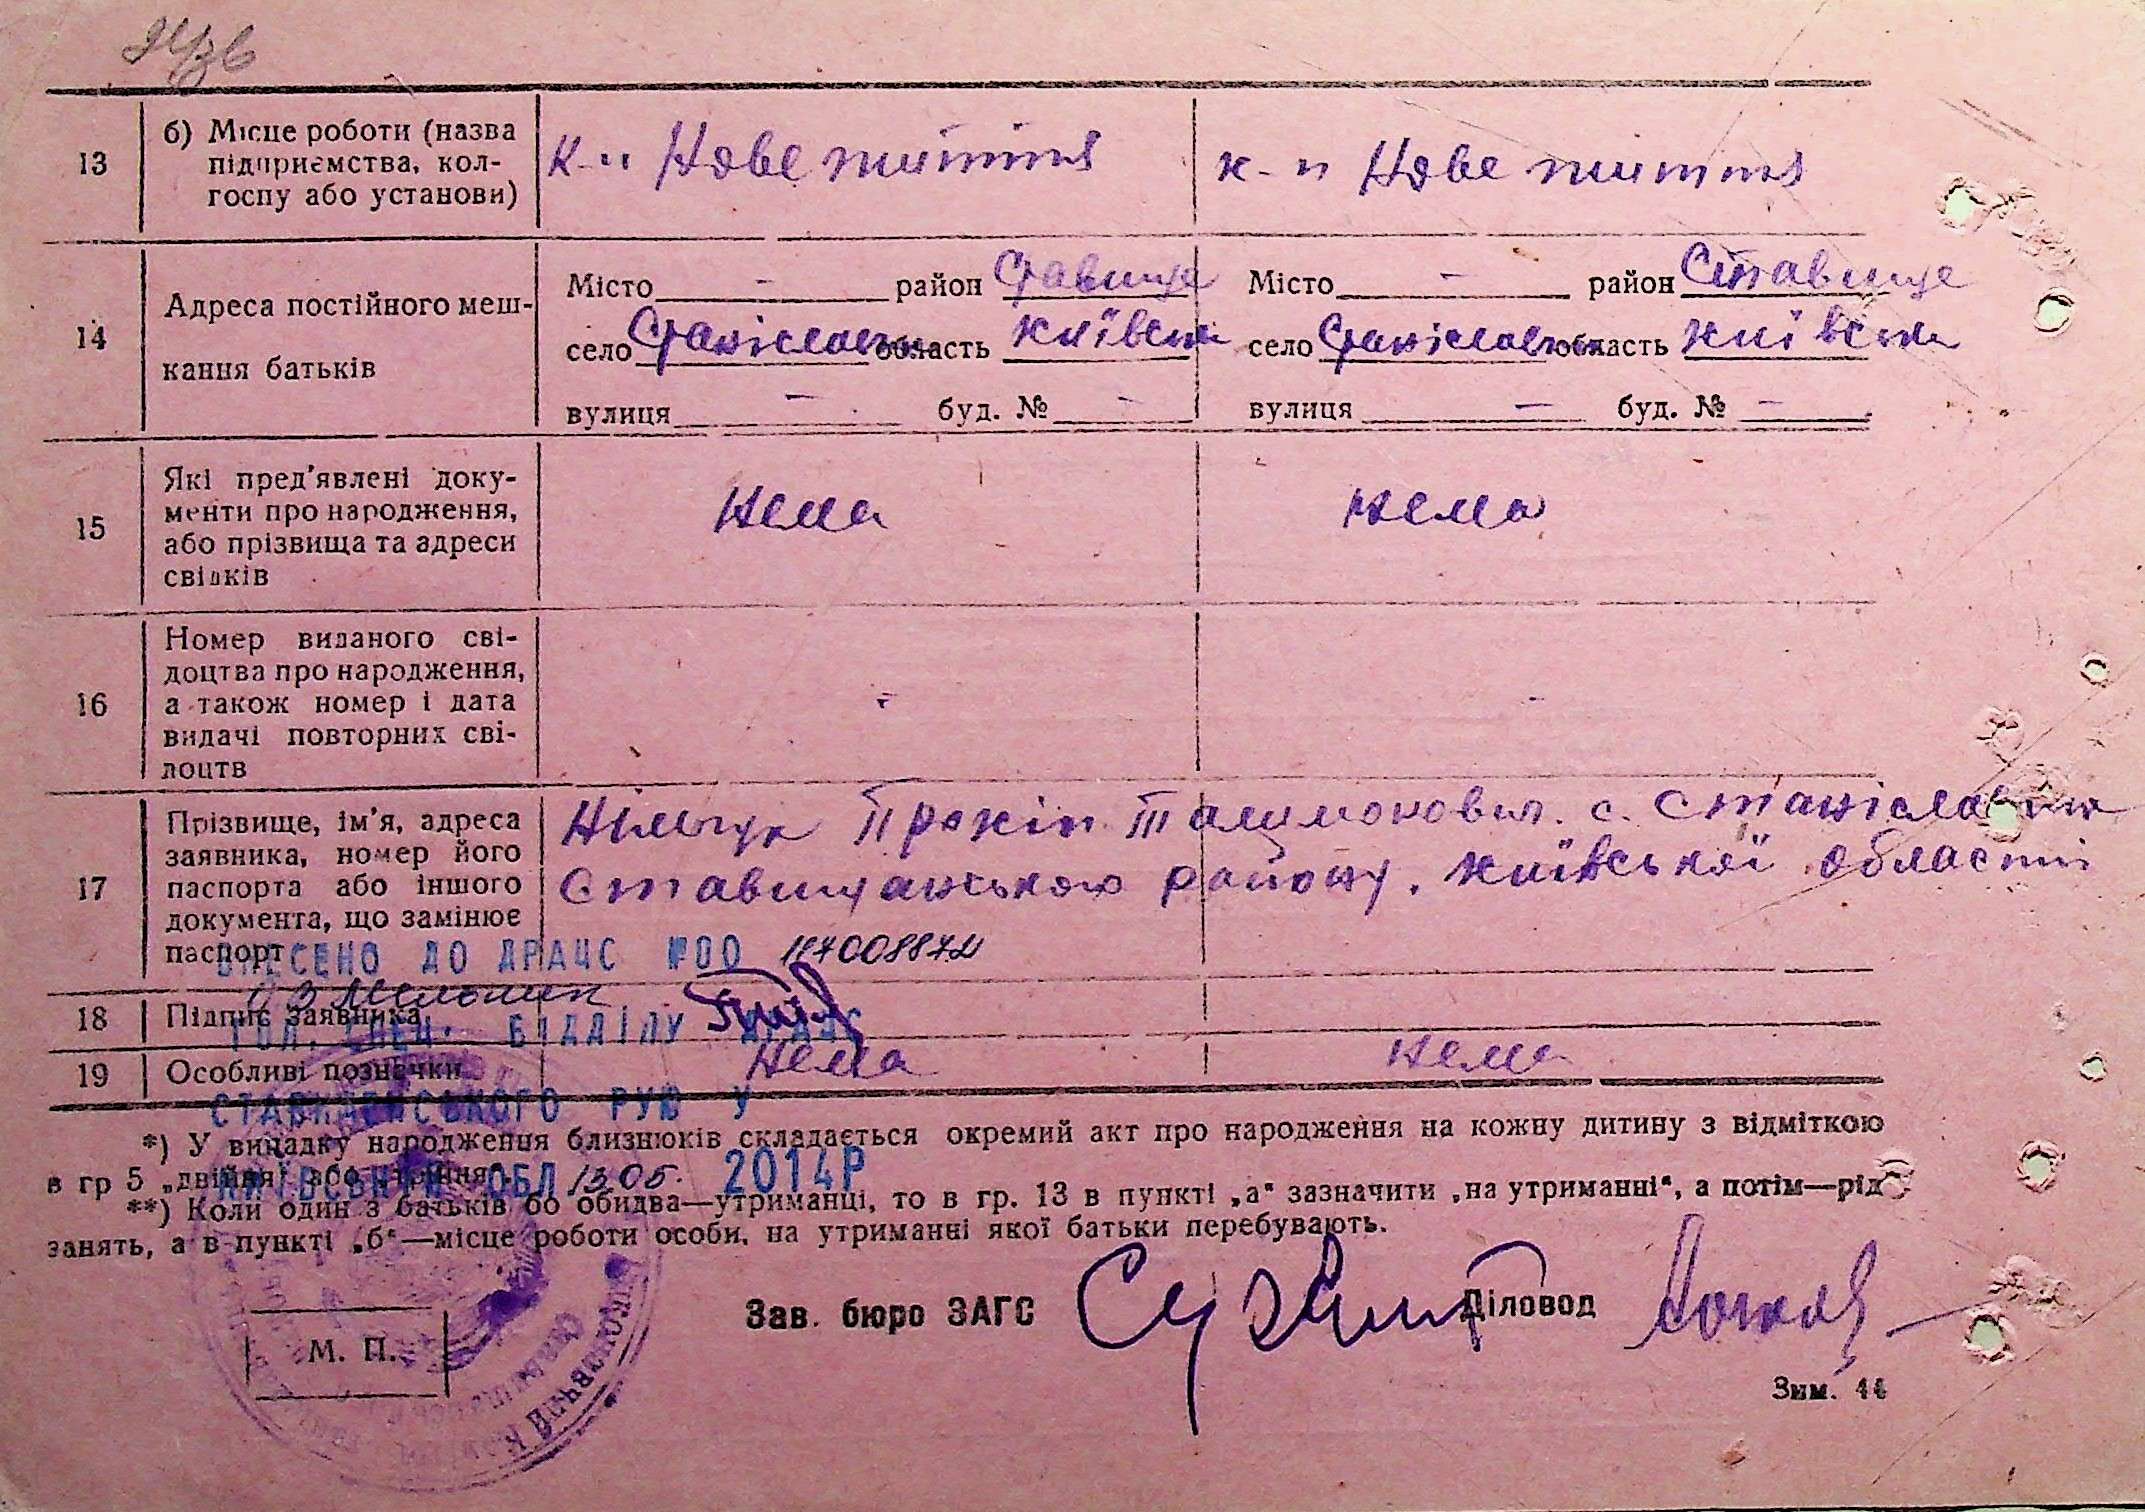 13 б) Місце роботи (назва підприємства, колгоспу або установи)
к-п Нове життя
к-п Нове життя
14 Адреса постійного мешкання батьків
Місто - район Ставище
село область Київськ
вулиця - буд. № -
Місто - район Ставище
село область Київськ
вулиця - буд. № -
15 Які пред'явлені документи про народження, або прізвища та адреси свідків
нема
нема
16 Номер виданого свідоцтва про народження, а також номер і дата видачі повторних свідоцтв
-
-
17 Прізвище, ім'я, адреса заявника, номер його паспорта або іншого документа, що замінює паспорт
Прокіп с.
району. Київської області
ВНЕСЕНО ДО ДРАЦС №00
18 Підпис заявника
Мельник
ГОЛ. СПЕЦ. ВІДДІЛУ ДРАЦС
19 Особливі позначки
нема
нема
СТАВИЩЕНСЬКОГО РУЮ У
*) У випадку народження близнюків складається окремий акт про народження на кожну дитину з відміткою
в гр 5 „двійня" або „трійня".
КИЇВСЬКІЙ ОБЛ 13.05. 2014Р
**) Коли один з батьків бо обидва—утриманці, то в гр. 13 в пункті „а" зазначити „на утриманні", а потім—рід
занять, а в пункті „б"—місце роботи особи, на утриманні якої батьки перебувають.
Зав. бюро ЗАГС
Діловод
М. П.
Зим. 44